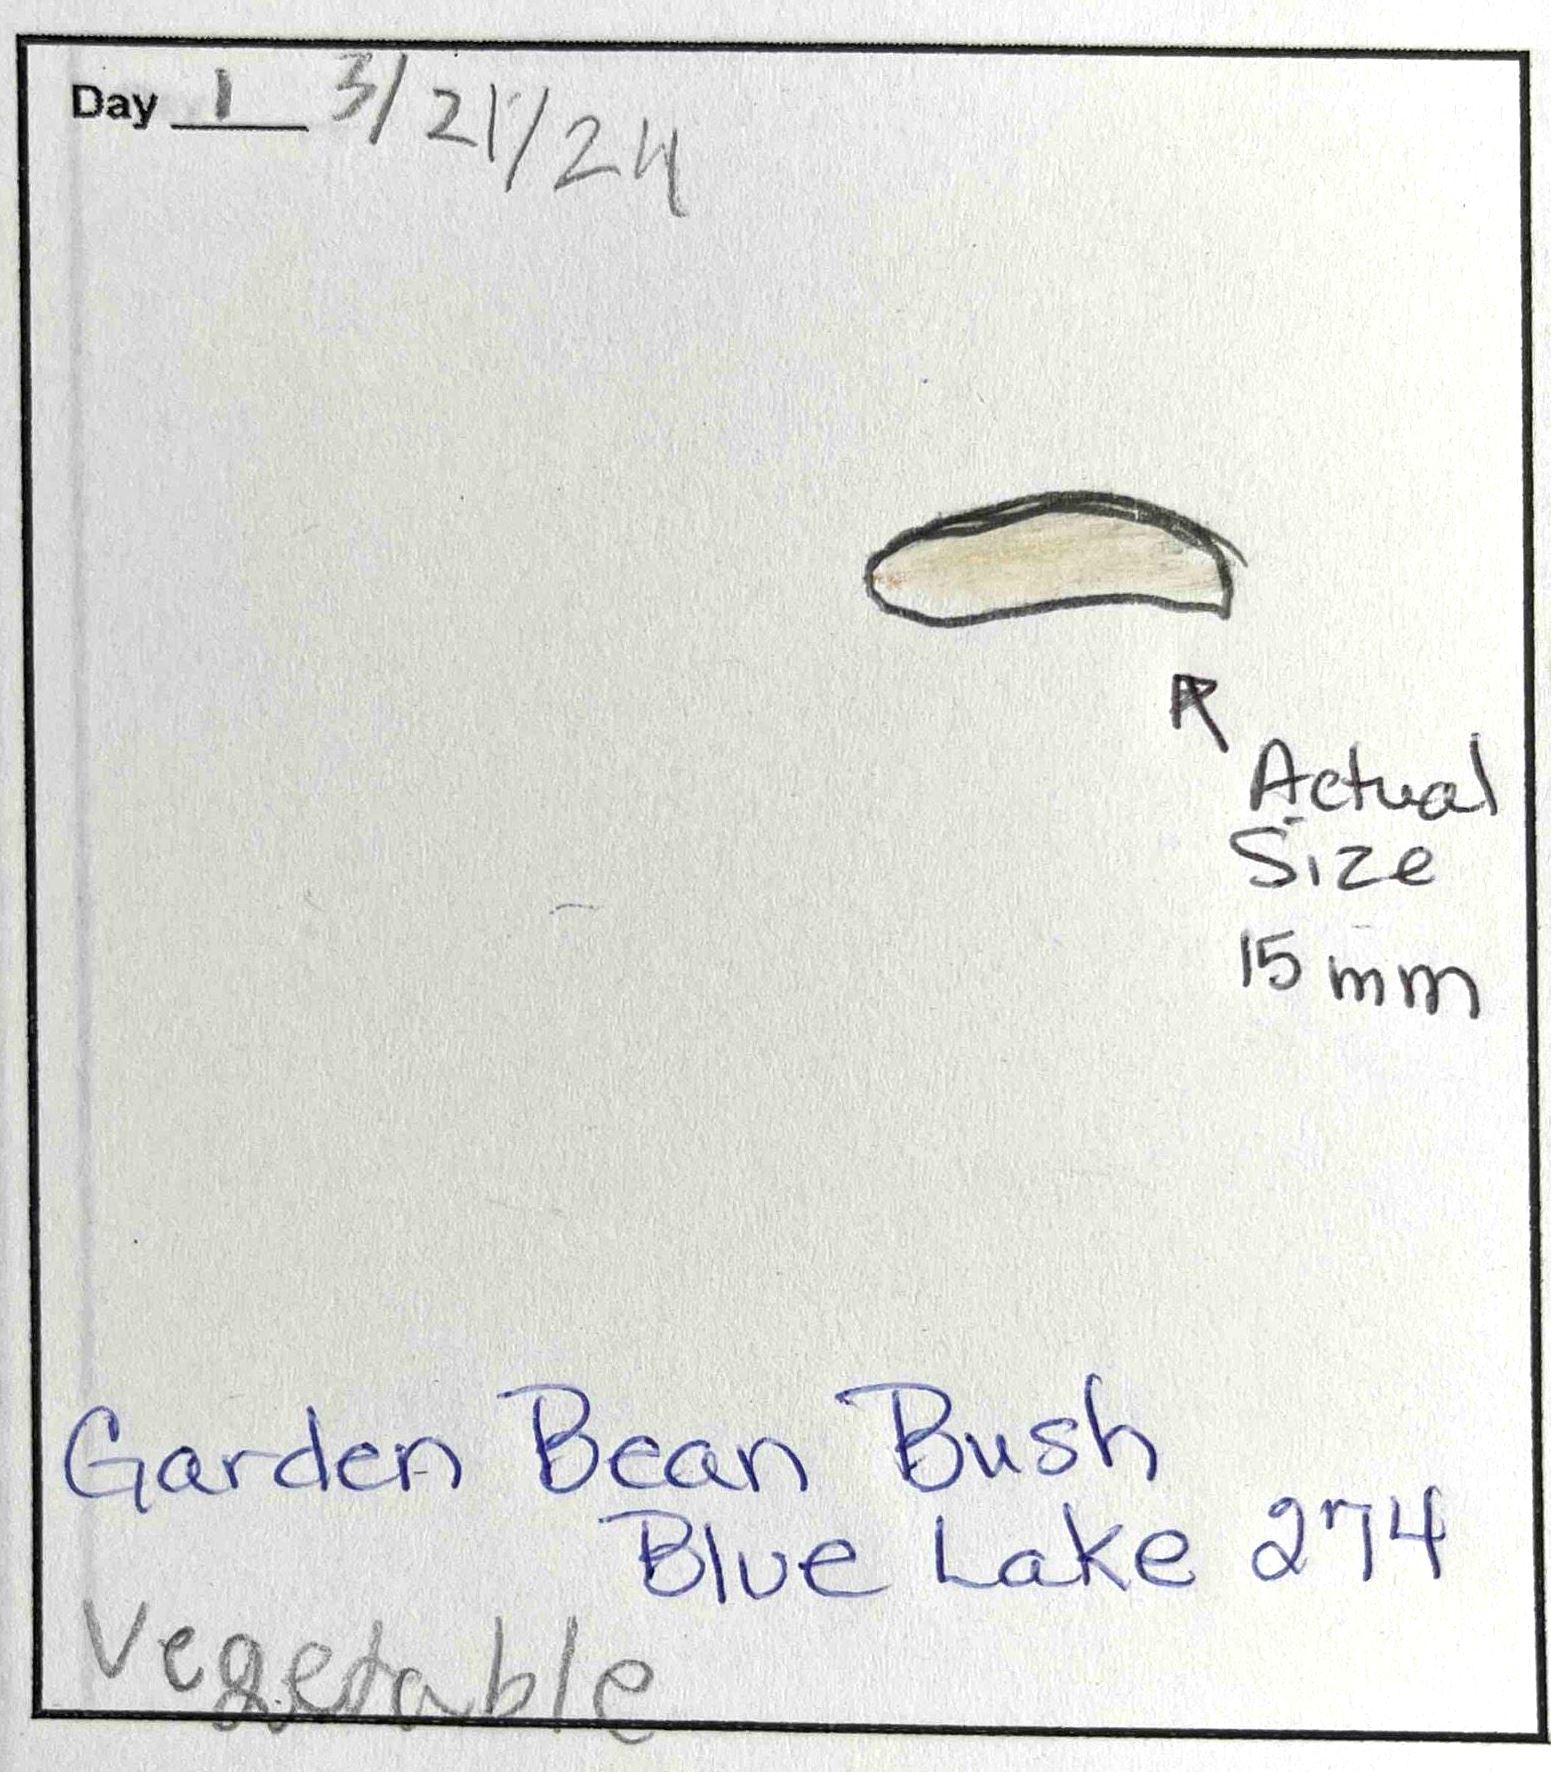 Day 1 3/21/24
Actual
Size
15 mm
Garden Bean Bush
Blue Lake 274
Vegetable